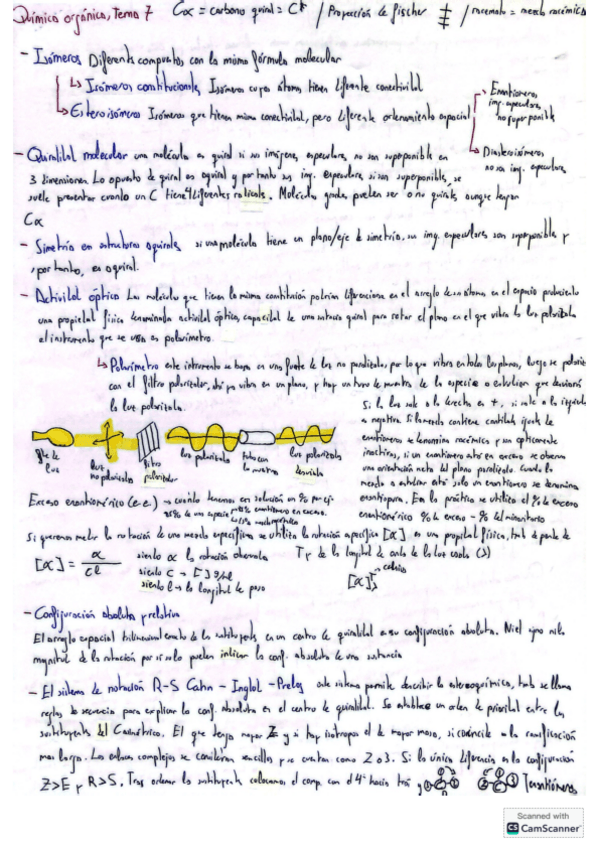 Química orgánica, Tema 7 Cα = carbono quiral = C* / Proyección de Fischer / racemato = mezcla racémica
- Isómeros Diferentes compuestos con la misma fórmula molecular
↳ Isómeros constitucionales Isómeros cuyos átomos tienen diferente conectividad
↳ Estereoisómeros Isómeros que tienen misma conectividad, pero diferente ordenamiento espacial
Enantiómeros
img. especulares,
no superponible
Diastereoisómeros
no son img. especulares
- Quiralidad molecular una molécula es quiral si sus imágenes especulares no son superponibles en
3 dimensiones. Lo opuesto de quiral es aquiral y por tanto sus img. especulares si son superponibles, se
suele presentar cuando un C tiene 4 diferentes radicals. Moléculas grandes pueden ser o no quirales, aunque tengan
Cα
- Simetría en estructuras aquirales si una molécula tiene un plano/eje de simetría, su img. especulares son superponibles y
, por tanto, es aquiral.
- Actividad óptica Las moléculas que tienen la misma constitución podrían diferenciarse en el arreglo de sus átomos en el espacio produciendo
una propiedad física denominada actividad óptica, capacidad de una sustancia quiral para rotar el plano en el que vibra la luz polarizada
el instrumento que se usa es polarímetro.
↳ Polarímetro este instrumento se basa en una fuente de luz no polarizada, por lo que vibra en todos los planos, luego se polariza
con el filtro polarizador, ahí ya vibra en un plano, y hay un tubo de muestra de la especie a estudiar que desviará
la luz polarizada.
Si la luz sale a la derecha es +, si sale a la izquierda
es negativa. Si la muestra contiene cantidades iguales de
enantiómeros se denomina racémica y son ópticamente
inactivos, si un enantiómero está en exceso se observa
una orientación neta del plano polarizado. Cuando la
muestra a estudiar está solo un enantiómero se denomina
enantiopura. En la práctica se utiliza el % de exceso
enantiomérico % de exceso - % del minoritario
fte de
luz
luz
no polarizada
filtro
polarizador
luz polarizada
tubo con
la muestra
luz polarizada
desviada
Exceso enantiomérico (e.e.) → cuando tenemos en solución un % por ej.
Si queremos medir la rotación de una mezcla específica se utiliza la rotación específica [α] es una propiedad física, todo depende de
[α] = α / cl
siendo α la rotación observada
siendo c → [ ] g/ml
siendo l → la longitud de paso
T y de la longitud de onda de la luz usada (λ)
- Configuración absoluta y relativa
El arreglo espacial tridimensional exacto de los sustituyentes en un centro de quiralidad es su configuración absoluta. Ni el signo ni la
magnitud de la rotación por sí solo pueden indicar la conf. absoluta de una sustancia
- El sistema de notación R-S Cahn - Ingold - Prelog este sistema permite describir la estereoquímica, todo se llama
reglas de secuencia para explicar la conf. absoluta en el centro de quiralidad. Se establece un orden de prioridad entre los
sustituyentes del C asimétrico. El que tenga mayor Z y si hay isótropos el de mayor masa, si coincide a la ramificación
mas larga. Los enlaces complejos se consideran sencillos y se cuentan como 2 o 3. Si la única diferencia es la configuración
Z>E y R>S. Tras ordenar los sustituyentes colocamos el comp. con el 4º hacia trás y
Scanned with
CS CamScanner